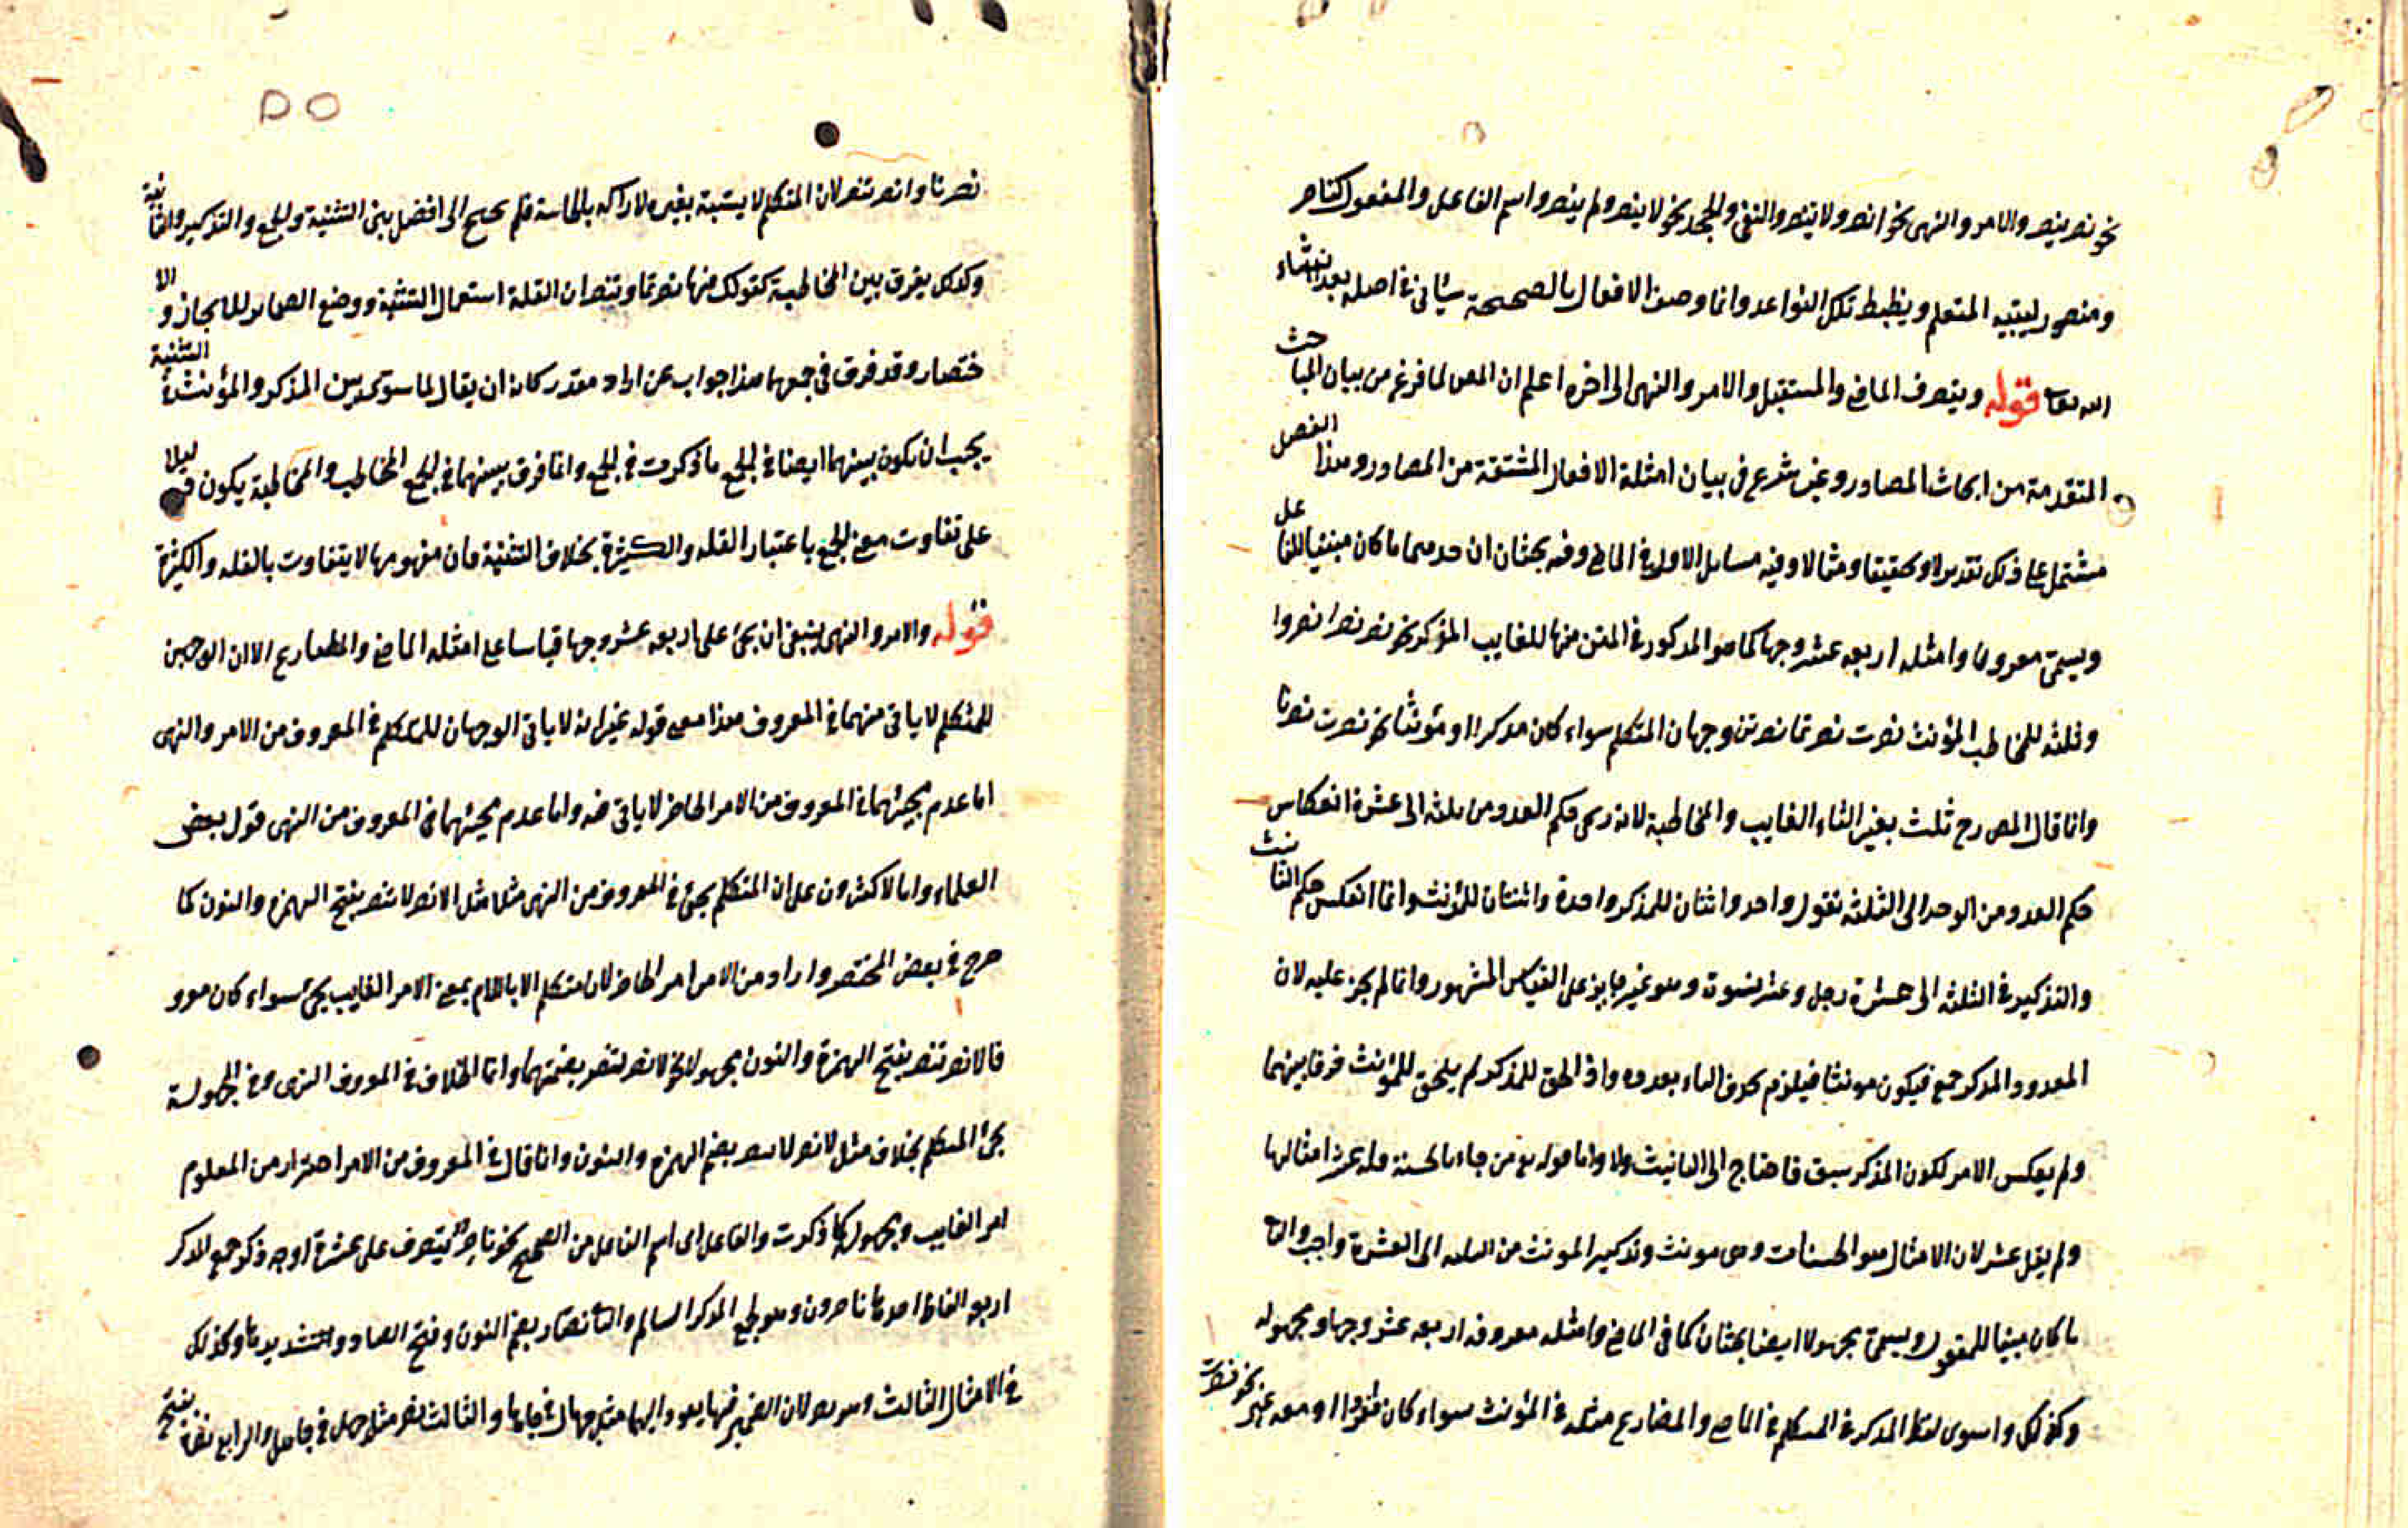 نحو نصر ينصر والامر والنهى نحو انصر ولا تنصر والنفى والجحد نحو لا ينصر ولم ينصر واسم الفاعل والمفعول كناصر
ومنصور ليتبيه المتعلم ويظبط تلك القواعد وانما وصف الافعال بالصحيحة سيأتى فى اصله بعد انشاء
الله تعا قوله ويتصرف الماضى والمستقبل والامر والنهى الى اخره اعلم ان المص لما فرغ من بيان المباحث
المتقدمة من ابحاث المصادر وغير شرع فى بيان امثلة الافعال المشتقة من المصادر وهذا الفصل
مشتمل على ذلك تقديرا وتحقيقا ومثالا وفيه مسايل الاولى فى الماضى وفه بحثان ان حدهما ما كان مبنيا للفاعل
ويسمى معروفا وامثله اربعه عشر وجها كما هو المدكور فى المتن منها للغايب المذكر نحو نصر نصرا نصروا
وثلثه للمخاطب المؤنث نصرت نصرتما نصرتن وجهان المتكلم سواء كان مدكرا او مؤنثا نحو نصرت نصرنا
وانما قال المص رح ثلث بغير التاء الغايب والمخاطبة لانه رعى حكم العدد من ثلثه الى عشرة انعكاس
حكم العدد من الوحد الى الثلثه تقول واحد واثنان للمذكر واحدة واثنتان للمؤنث وانما انعكس حكم التانيث
والتذكير فى الثلثه الى عشرة رجل وعشر نسوت وهو غير جايز على القياس المشهور وانما لم يجز عليه لان
المعدود المدكر جمع فيكون مونثا فيلزم بحوق التاء بعدده واذا لحق للمذكر لم يلحق للمؤنث فرقا بينهما
ولم يعكس الامر لكون المذكر سبق فاحتاج الى التانيث ولا واما قوله تع من جاء بالحسنة فله عشر امثالها
ولم يقل عشر لان الامثال هو الحسنات وهى مونث وتذكير المونث من الثلثه الى العشرة واجب والثا
ما كان مبنيا للمفعول ويسمى مجهولا ايضا بحثان كما فى الماضى وامثله معروفه اربعه عشر وجها ومجهوله
وكذلك واسوى لفظ المدكر فى المتكلم فى الماضى والمضارع مثله فى المؤنث سواء كان مفردا او معه غير نحو نصرت
نصرنا وانصر ننصر لان المتكلم لا يشبه بغيره لادراكه بالحاسة فلم يحتج الى افضل بين التثنية والجمع والتذكير والتانية
وكذلك يفرق بين المخاطبة كقولك منها نصرتما وتنصران القلة استعمال التثنية ووضع الضماير للايجاز والا
ختصار وقد فرق فى جمعهما هذا جواب عن ايراد مقدر كانه ان يقال لما سوى بين المذكر والمؤنث فى التثنية
يجب ان يكون بينهما ايضا فى الجمع ما ذكرت فى الجمع وانما فرق بينهما فى الجمع المخاطب والمخاطبة يكون دليلا
على تفاوت معنى الجمع باعتبار القله والكثرة بخلاف التثنية فان مفهومها لا يتفاوت بالقله والكثرة
قوله والامر والنهى ينبغى ان يجئ على اربعه عشر وجها قياسا على امثله الماضى والمضارع الا ان الوجهين
للمتكلم لا ياتى منهما فى المعروف هذا معنى قوله غير انه لا ياتى الوجهان للمتكلم فى المعروف من الامر والنهى
اما عدم مجيئهما فى المعروف من الامر الحاضر لا ياتى منه واما عدم مجيئهما فى المعروف من النهى قول بعض
العلماء واما الاكثرون على ان المتكلم يجئ فى المعروف من النهى مثلا مثل لا انصر لا ننصر بفتح الهمزه والنون كما
صرح فى بعض المختصر واراد من الامر امر الحاضر لان متكلم الا باللام بمعنى الامر الغايب يجئ سواء كان معرو
فا لانصر ننصر بفتح الهمزة والنون مجهولا نحو لانصر لننصر بضمتهما وانما الخلاف فى المعروف النهى وفى المجهولة
يجئ المتكلم بخلاف مثل لا نصر لا ننصر بضم الهمزه والنون وانما قال فى المعروف من الامر احترار من المعلوم
امر الغايب ومجهوله كما ذكرت والفاعل اى اسم الفاعل من الصحيح نحو ناصر يتصرف على عشرة اوجه ذكو جمع المدكر
اربع الفاظ احدها ناصرون وهو لجمع المدكر السالم والثا نصار بضم النون وفتح الصاد والتشديدها وكذلك
فى الامثال الثالث لان الضمير فيها يعود اليها مثل جهال فى جاهل والثالث نصر مثل جهل فى جاهل والرابع نصرة بفتح